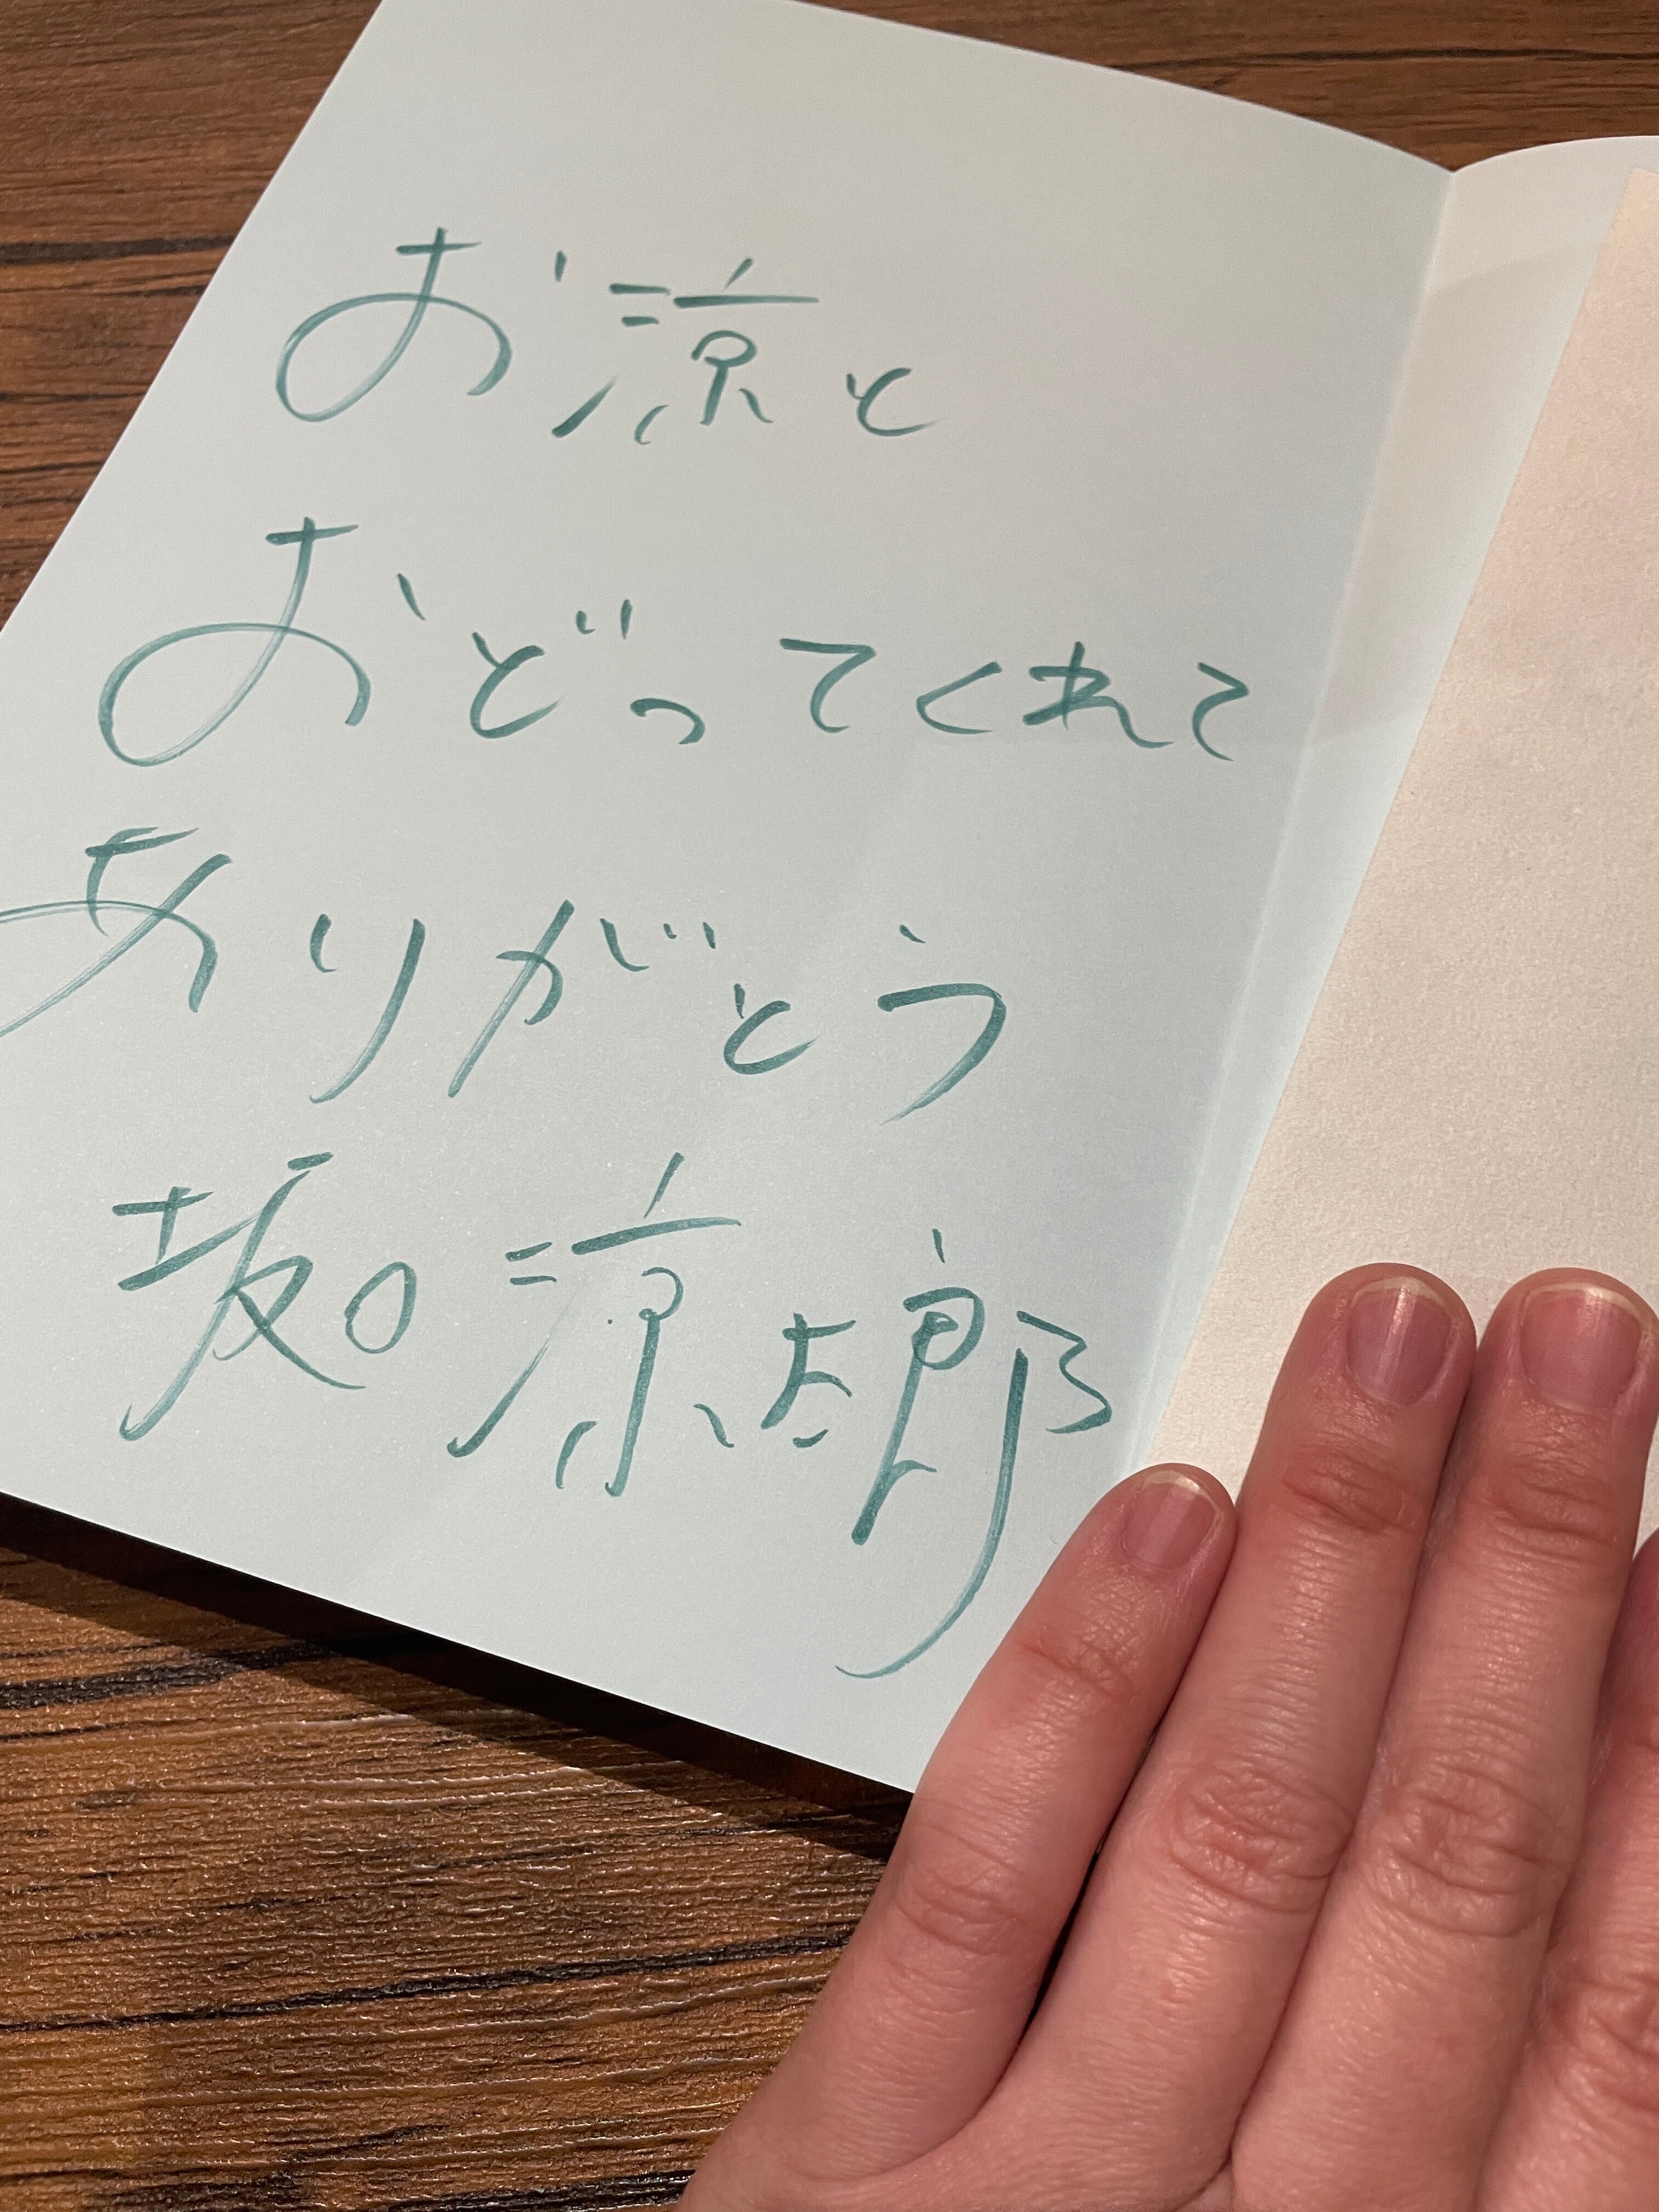 お涼と
おどってくれて
ありがとう
坂口涼太郎